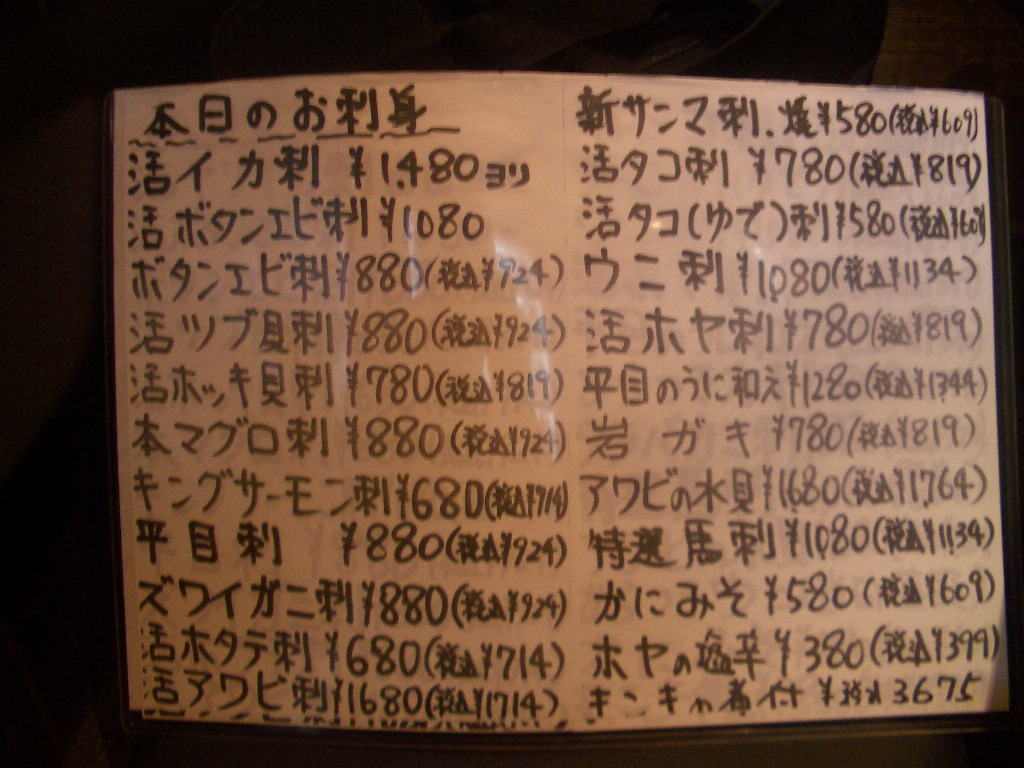 本日のお刺身
活イカ刺 ¥1,480ヨリ
活ボタンエビ刺 ¥1080
ボタンエビ刺 ¥880(税込¥924)
活ツブ貝刺 ¥880(税込¥924)
活ホッキ貝刺 ¥780(税込¥819)
本マグロ刺 ¥880(税込¥924)
キングサーモン刺 ¥680(税込¥714)
平目刺 ¥880(税込¥924)
ズワイガニ刺 ¥880(税込¥924)
活ホタテ刺 ¥680(税込¥714)
活アワビ刺 ¥1680(税込¥1714)
新サンマ刺、焼 ¥580(税込¥609)
活タコ刺 ¥780(税込¥819)
活タコ(ゆで)刺 ¥580(税込¥609)
ウニ刺 ¥1,080(税込¥1134)
活ホヤ刺 ¥780(税込¥819)
平目のうに和え ¥1280(税込¥1344)
岩ガキ ¥780(税込¥819)
アワビの水貝 ¥1,680(税込¥1,764)
特選馬刺 ¥1,080(税込¥1,134)
かにみそ ¥580(税込¥609)
ホヤの塩辛 ¥380(税込¥399)
キンキの煮付 ¥税込3675